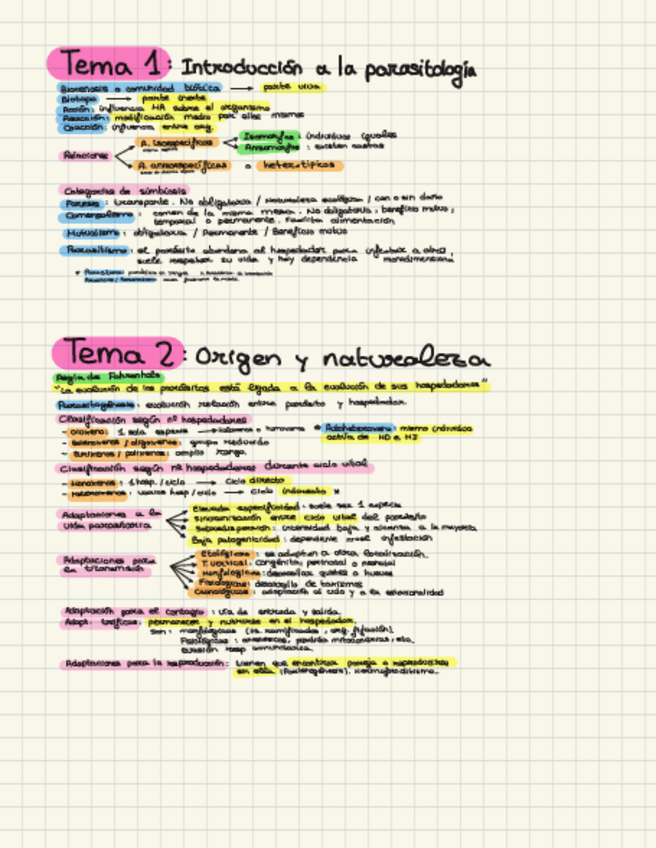 Tema 1: Introducción a la parasitología
Biocenosis o comunidad biótica → parte viva
Biotopo → parte inerte
Acción: influencia MA sobre el organismo
Reacción: modificación medio por ellos mismos
Coacción: influencia entre org.
Relaciones
A. isoespecíficas
Isomorfos: individuos iguales
Anisomorfos: existen castas
A. anisoespecíficas o heterotípicas
Categorías de simbiosis
Foresis: transporte. No obligatoria / Naturaleza ecológica / con o sin daño
Comensalismo: comen de la misma mesa. No obligatoria, beneficio mutuo,
temporal o permanente. Función alimentación
Mutualismo: obligatoria / Permanente / Beneficio mutuo
Parasitismo: el parásito abandona al hospedador para infectar a otros,
suele respetar su vida y hay dependencia
Tema 2: Origen y naturaleza
Regla de Fahrenholz
"La evolución de los parásitos está ligada a la evolución de sus hospedadores"
Parasitogénesis: evolución relación entre parásito y hospedador.
Clasificación según nº hospedadores
- Oioxeno: 1 sola especie →
* Autoheteroxeno: mismo individuo
actúa de HD e HI
- Estenoxenos / oligoxenos: grupo reducido
- Eurixenos / polixenos: amplio rango.
Clasificación según nº hospedadores durante ciclo vital
- Monoxenos: 1 hosp / ciclo → Ciclo directo
- Heteroxenos: varios hosp / ciclo → Ciclo indirecto *
Adaptaciones a la
vida parasitaria
Elevada especificidad: suele ser 1 especie
Sincronización entre ciclo vital del parásito
Sobredispersión: intensidad baja y ausente a la mayoría
Baja patogenicidad: dependiente nivel infestación
Adaptaciones para
la transmisión
Etológicas: se adaptan a otra localización.
T. vertical: congénita, perinatal o neonatal
Morfológicas: desarrollar quistes o huevos
Fisiológicas: desarrollo de taxismos
Cronológicas: adaptación al ciclo y a la estacionalidad
Adaptación para el contagio: vía de entrada y salida.
Adapt. tróficas: permanecer y nutrirse en el hospedador
Son: morfológicas (
Fisiológicas: anaerobios, pérdida mitocondrias, etc.
evasión resp inmunitaria.
Adaptaciones para la reproducción: tienen que encontrar pareja o reproducirse
sin ella (partenogénesis), hermafroditismo.